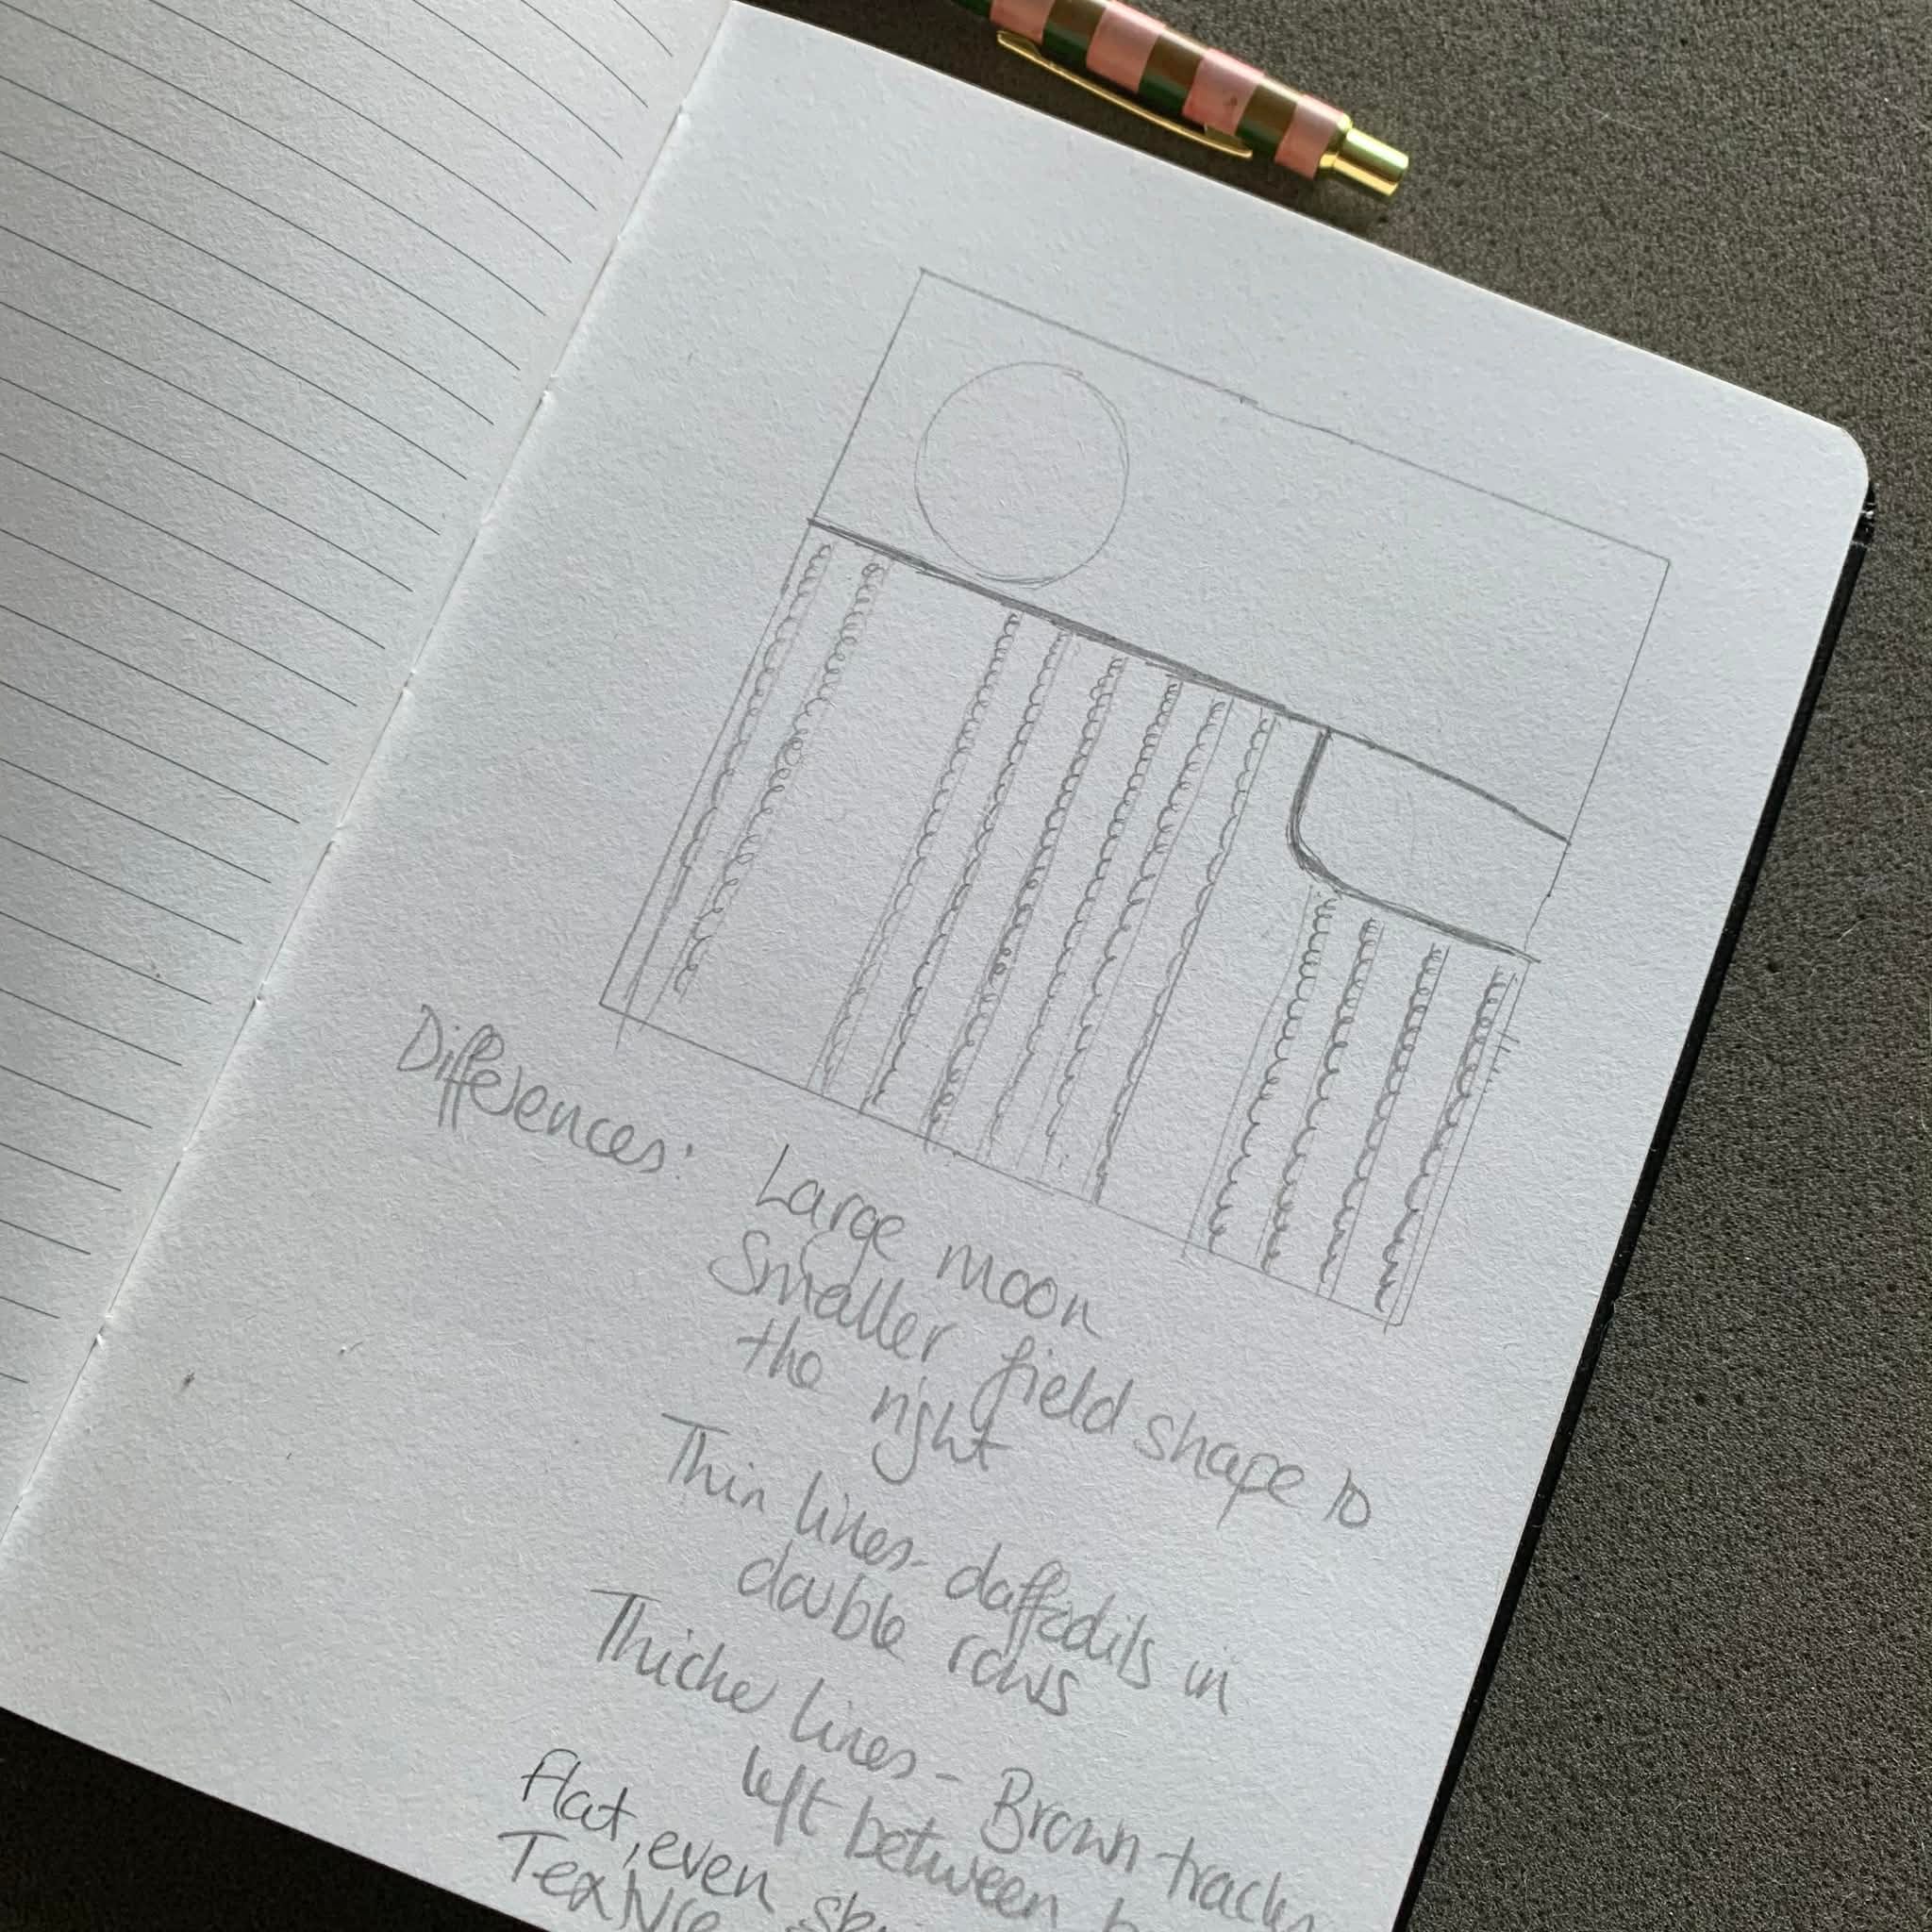 Differences:
Large moon
Smaller field shape to
the right
Thin lines - daffodils in
double rows
Thicker lines - Brown tracks
left between
flat, even
Texture